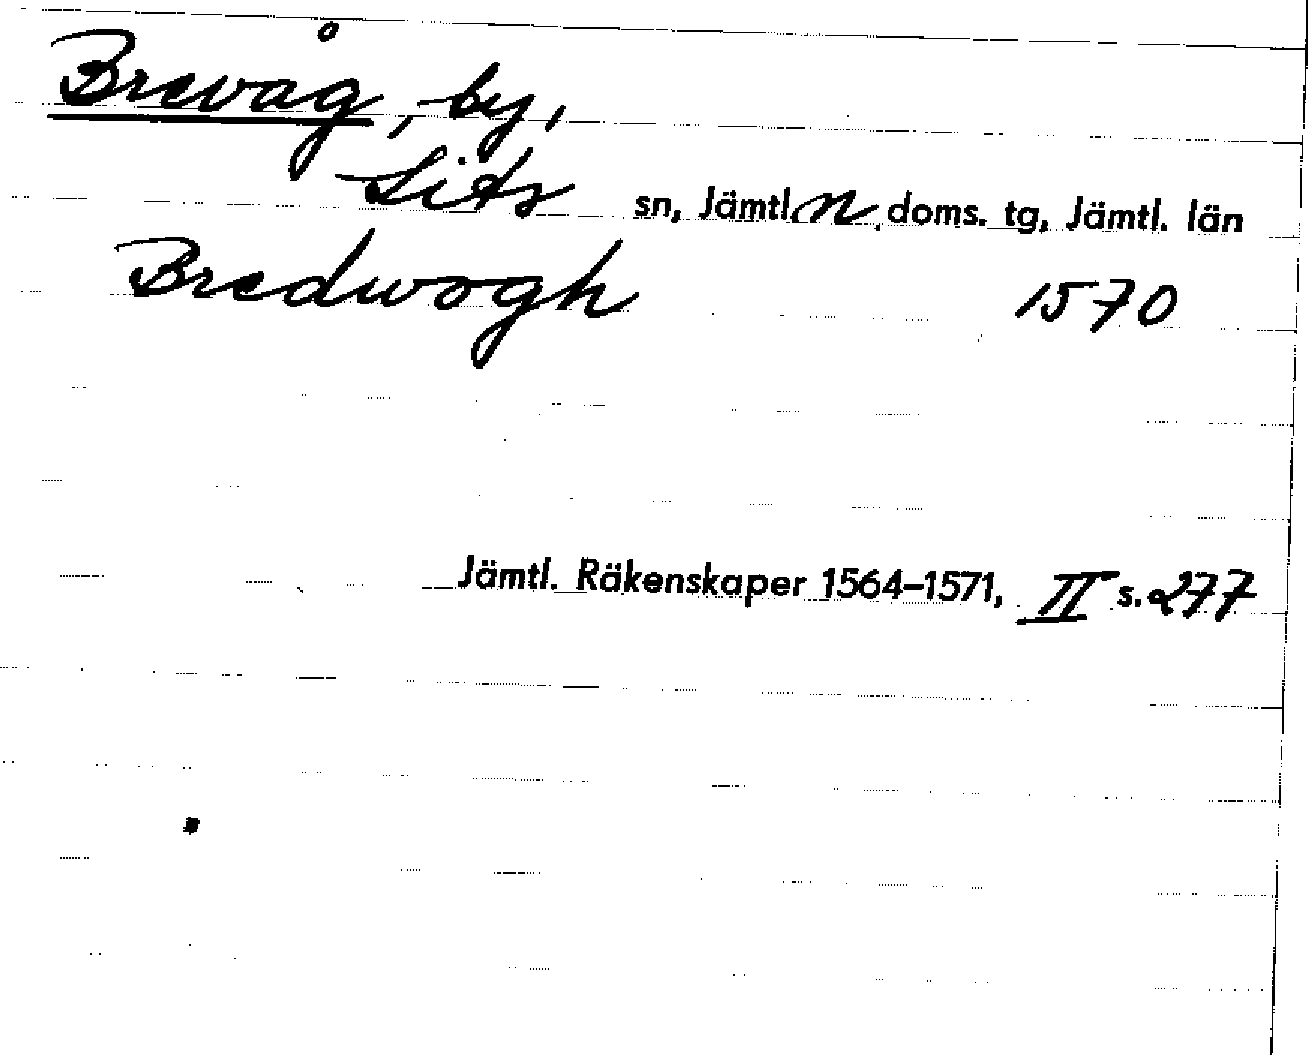 Brevåg, by,
Lits sn, Jämtl. n. doms. tg, Jämtl. län
Bredwogh 1570
Jämtl. Räkenskaper 1564–1571, II s. 277